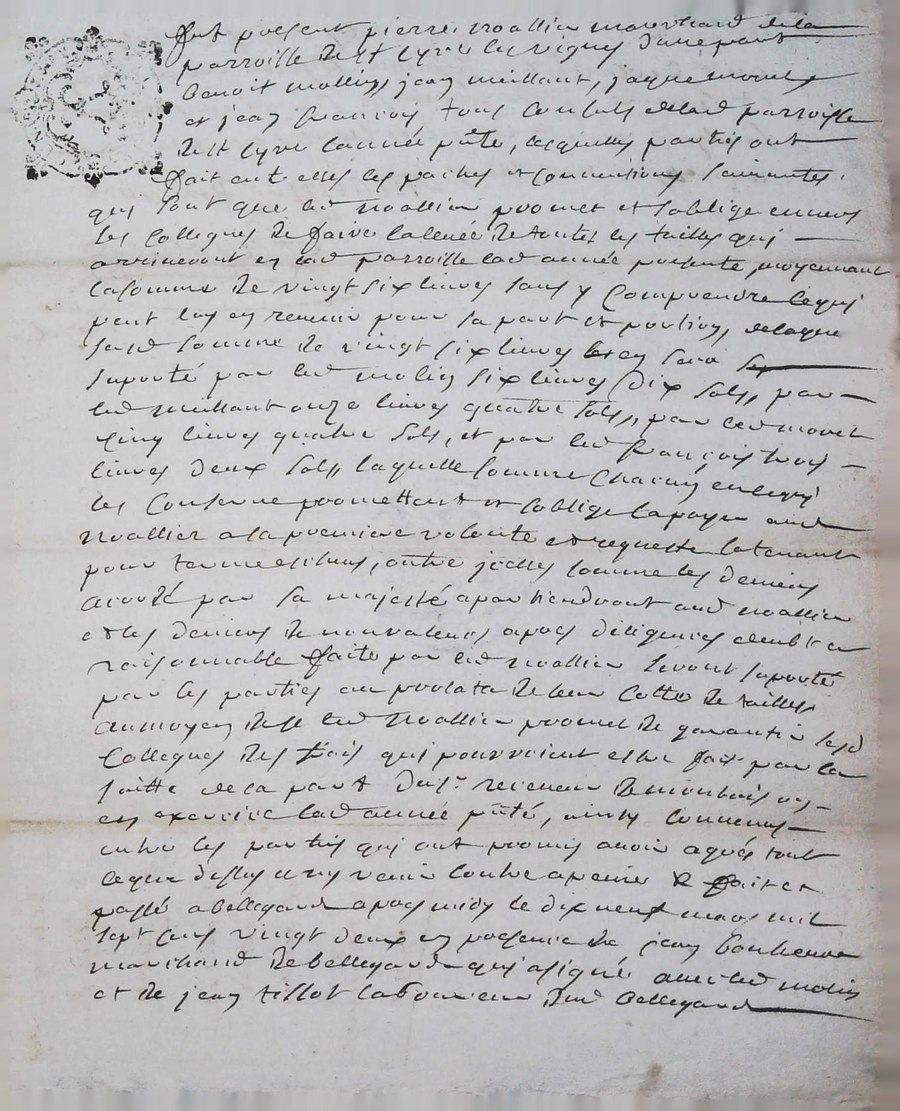 fut present pierre noallier marchand de la
parroisse de st cyre les vignes d'une part
Benoit mollin, jean meillant, jaque morel
et jean francois tous consuls de lad parroisse
de st cyre l'année pnte lesquelles parties ont
fait entre elles les paches et conventions suivantes,
qui sont que led noallier promet et s'oblige envers
ses collegues de faire la levée de toutes les tailles qui
arriveront en lad parroisse lad année presente, moyennant
la somme de vingt six livres sans y comprendre ce qui
peut luy en revenir pour sa part et portion, de laque
susd somme de vingt six livres en sera
suporté par led molin six livres dix sols, par
led meillant onze livres quatre sols, par led morel
cinq livres quatre sols, et par led françois trois
livres deux sols, laquelle somme chacun en ce qui
les conserne promettent et s'oblige la payer aud
noallier a la premiere volonté et requeste le tenant
pour terme eschus, outre jcelles somme les deniers
acordé par sa majesté apartiendront aud noallier
et les deniers de nonvaleurs apres diligences
raisonnable faite par led noallier seront suporté
par les parties au prorata de leur cotte de tailles
au moyen de ce led noallier promet de garantir sesd
collegues des frais qui pourroient estre fait par la
suitte de la part du sr receveur de montbrison
en exercice lad année pnte, ainsy convenus
entre les partis qui ont promis avoir a gré tout
ce que dessus et ny venir contre a peine & fait et
passé a bellegarde apres midy le dix neuf mars mil
sept cens vingt deux en presence de jean
marchand de bellegarde qui a signé avec led molin
et de jean tillot laboureur dud bellegarde